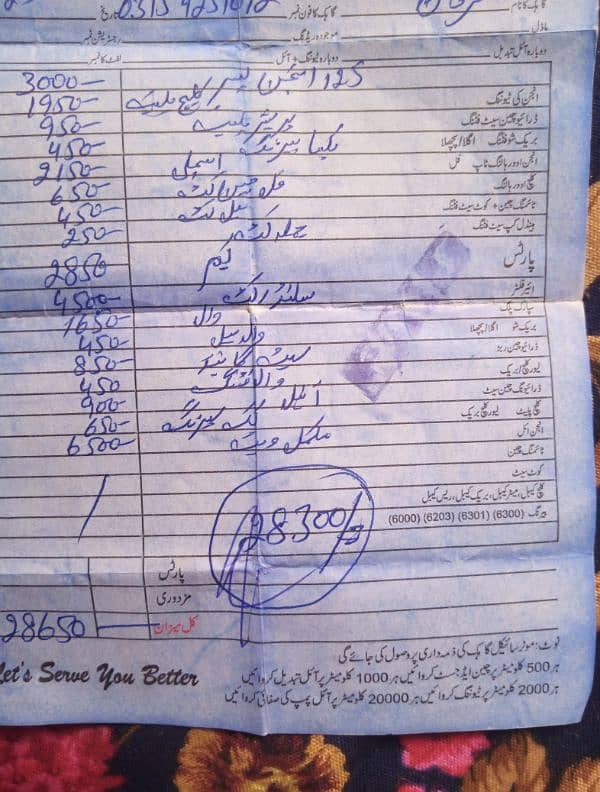 0315 9251012
گاہک کا فون نمبر
گاہک کا نام
تاریخ
ماڈل
موجودہ ریڈنگ
رجسٹریشن نمبر
دوبارہ آئل تبدیل
دوبارہ ٹیوننگ + آئل
لفٹ کا نمبر
125 انجن
3000
انجن کی ٹیوننگ
کلچ پلیٹ
1950
ڈرائیو چین سیٹ فٹنگ
پریشر پلیٹ
950
بریک شو فٹنگ اگلا/پچھلا
450
انجن اوور ہالنگ ٹاپ فل
2150
کلچ اوور ہالنگ
650
ٹائمنگ چین + کوٹ سیٹ فٹنگ
450
ہینڈل کپ سیٹ فٹنگ
250
پارٹس
کیم
2850
ائیر فلٹر
سلنڈر کٹ
4500
سپارک پلگ
وال
1650
بریک شو اگلا/پچھلا
وال سیل
450
ڈرائیو چین ربڑ
850
لیور کلچ/بریک
450
ڈرائیونگ چین سیٹ
آئل
900
کلچ پلیٹ لیور کلچ بریک
650
انجن آئل
6500
ٹائمنگ چین
کوٹ سیٹ
کلچ کیبل، میٹر کیبل، بریک کیبل، ریس کیبل
بیرنگ (6300) (6301) (6203) (6000)
28300/=
پارٹس
مزدوری
کل میزان
28650
Let's Serve You Better
نوٹ: موٹر سائیکل گاہک کی ذمہ داری پر وصول کی جائے گی
ہر 500 کلومیٹر پر چین ایڈجسٹ کروائیں ہر 1000 کلومیٹر پر آئل تبدیل کروائیں
ہر 2000 کلومیٹر پر ٹیوننگ کروائیں ہر 20000 کلومیٹر پر آئل پمپ کی صفائی کروائیں